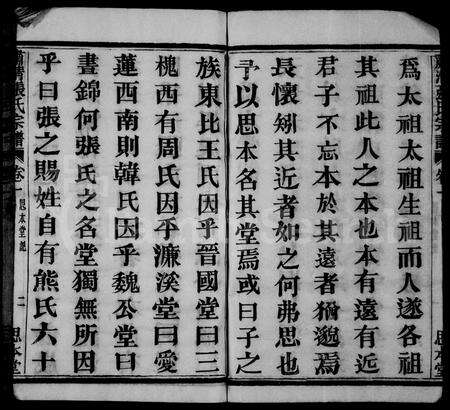 為太祖太祖生祖而人遂各祖
其祖此人之本也本有遠有近
君子不忘本於其遠者猶邈焉
長懷矧其近者如之何弗思也
予以思本名其堂焉或曰子之
族東比王氏因乎晉國堂曰三
槐西有周氏因乎濂溪堂曰愛
蓮西南則韓氏因乎魏公堂曰
晝錦何張氏之名堂獨無所因
乎曰張之賜姓自有熊氏六十
張氏宗譜
卷一
思本堂說
二
思本堂